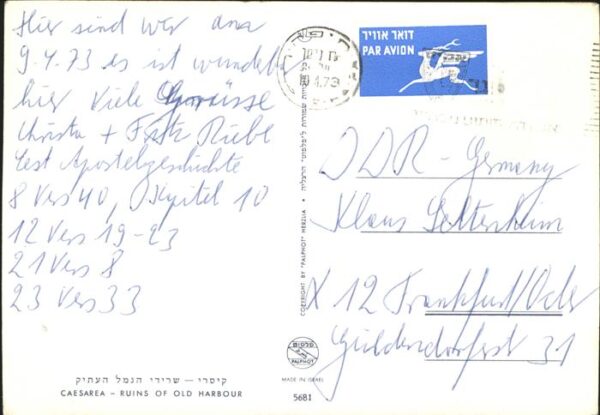 Hier sind wir am
9.4.73 es ist wunderb
hier Viele Grüsse
Christa + Fritz Riebe
Lest Apostelgeschichte
8 Vers 40, Kapitel 10
12 Vers 19-23
21 Vers 8
23 Vers 33
קיסרי — שרידי הנמל העתיק
CAESAREA - RUINS OF OLD HARBOUR
COPYRIGHT BY "PALPHOT" HERZLIA •
פלפוט
PALPHOT
MADE IN ISRAEL
5681
דואר אוויר
PAR AVION
4.73
DDR - Germany
Klaus
X 12 Frankfurt/Oder
31